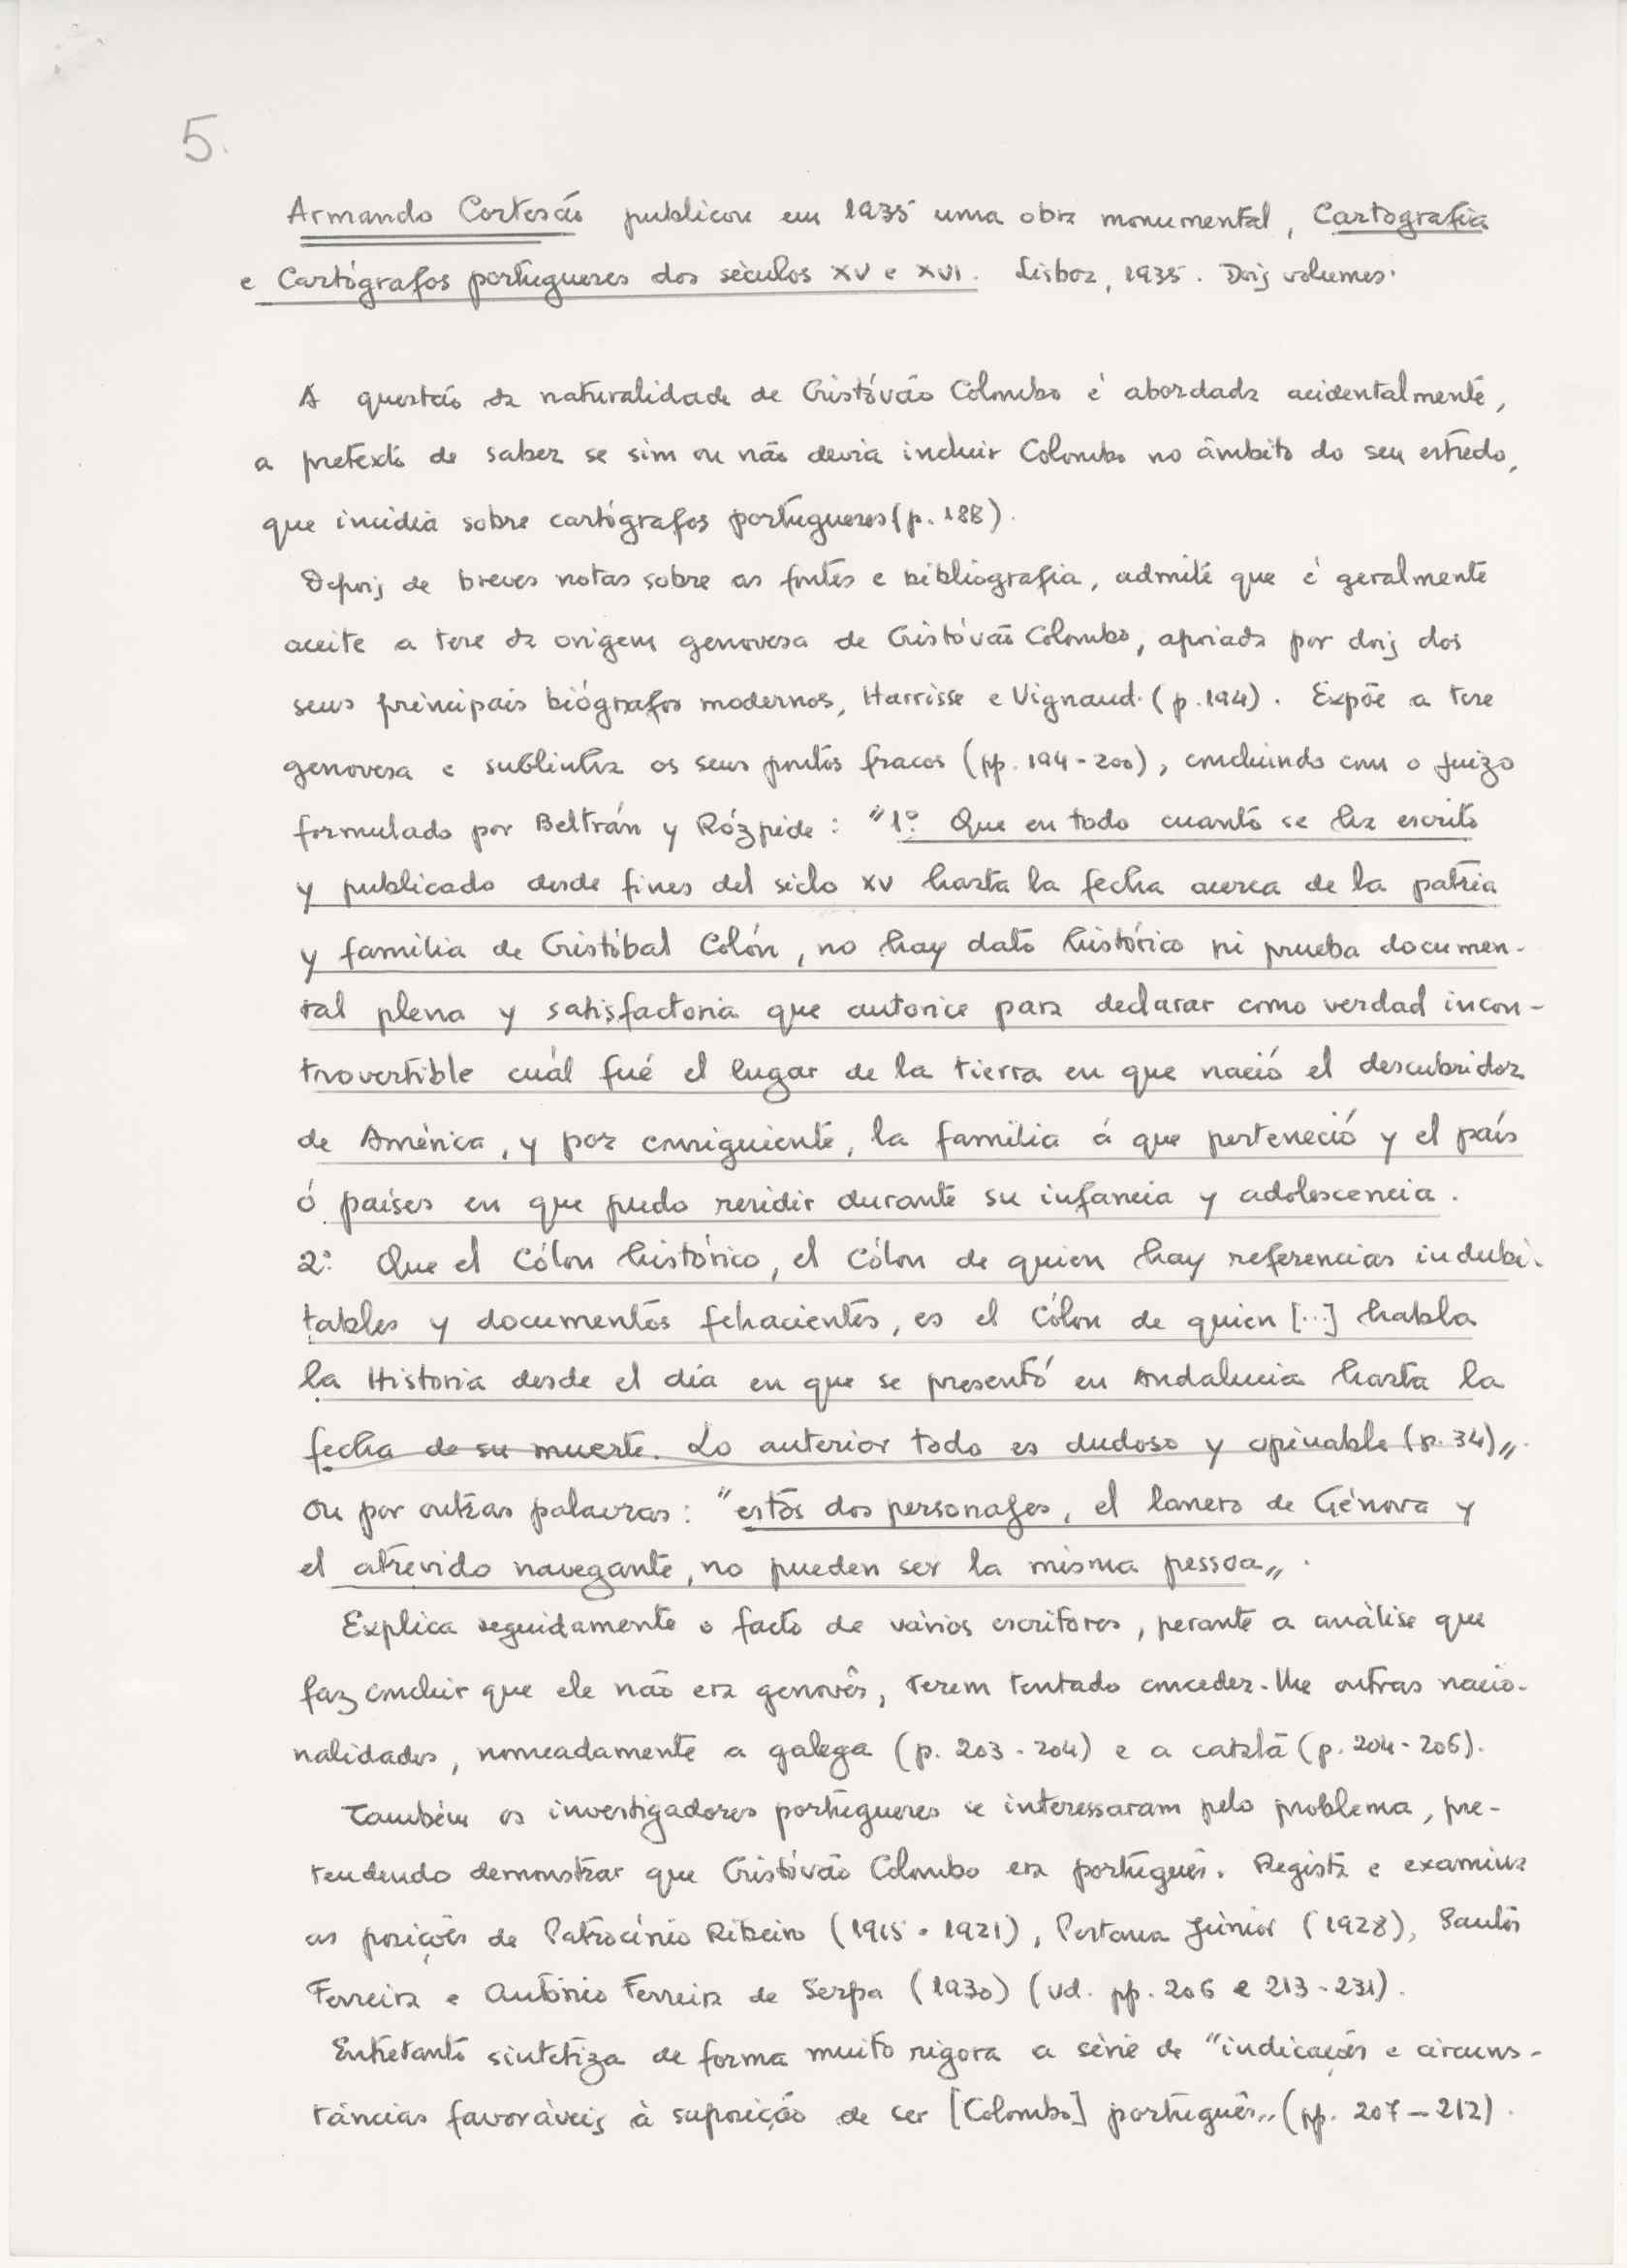 5.
Armando Cortesão publicou em 1935 uma obra monumental, Cartografia
e Cartógrafos portugueses dos séculos XV e XVI. Lisboa, 1935. Dois volumes.
A questão da naturalidade de Cristóvão Colombo é abordada acidentalmente,
a pretexto de saber se sim ou não devia incluir Colombo no âmbito do seu estudo,
que incidia sobre cartógrafos portugueses (p. 188).
Depois de breves notas sobre as fontes e bibliografia, admite que é geralmente
aceite a tese da origem genovesa de Cristóvão Colombo, apoiada por dois dos
seus principais biógrafos modernos, Harrisse e Vignaud. (p. 194). Expõe a tese
genovesa e sublinha os seus pontos fracos (pp. 194-200), concluindo com o juizo
formulado por Beltrán y Rózpide: "1º. Que en todo cuanto se ha escrito
y publicado desde fines del siclo XV hasta la fecha acerca de la patria
y familia de Cristóbal Colón, no hay dato histórico ni prueba documen-
tal plena y satisfactoria que autorice para declarar como verdad incon-
trovertible cuál fué el lugar de la tierra en que nació el descubridor
de América, y por consiguiente, la familia á que perteneció y el país
ó países en que pudo residir durante su infancia y adolescencia.
2º: Que el Cólon histórico, el Cólon de quien hay referencias indubi-
tables y documentos fehacientes, es el Cólon de quien [...] habla
la Historia desde el día en que se presentó en Andalucia hasta la
fecha de su muerte. Lo anterior todo es dudoso y opinable (p. 34)".
Ou por outras palavras: "estos dos personages, el lanero de Génova y
el atrevido navegante, no pueden ser la misma pessoa".
Explica seguidamente o facto de vários escritores, perante a análise que
faz concluir que ele não era genovês, terem tentado conceder-lhe outras nacio-
nalidades, nomeadamente a galega (p. 203-204) e a catalã (p. 204-206).
Também os investigadores portugueses se interessaram pelo problema, pre-
tendendo demonstrar que Cristóvão Colombo era português. Regista e examina
as posições de Patrocínio Ribeiro (1915-1921), Pestana Júnior (1928), Santos
Ferreira e António Ferreira de Serpa (1930) (vd. pp. 206 e 213-231).
Entretanto sintetiza de forma muito rigora a série de "indicações e circuns-
tâncias favoráveis à suposição de ser [Colombo] português" (pp. 207-212).